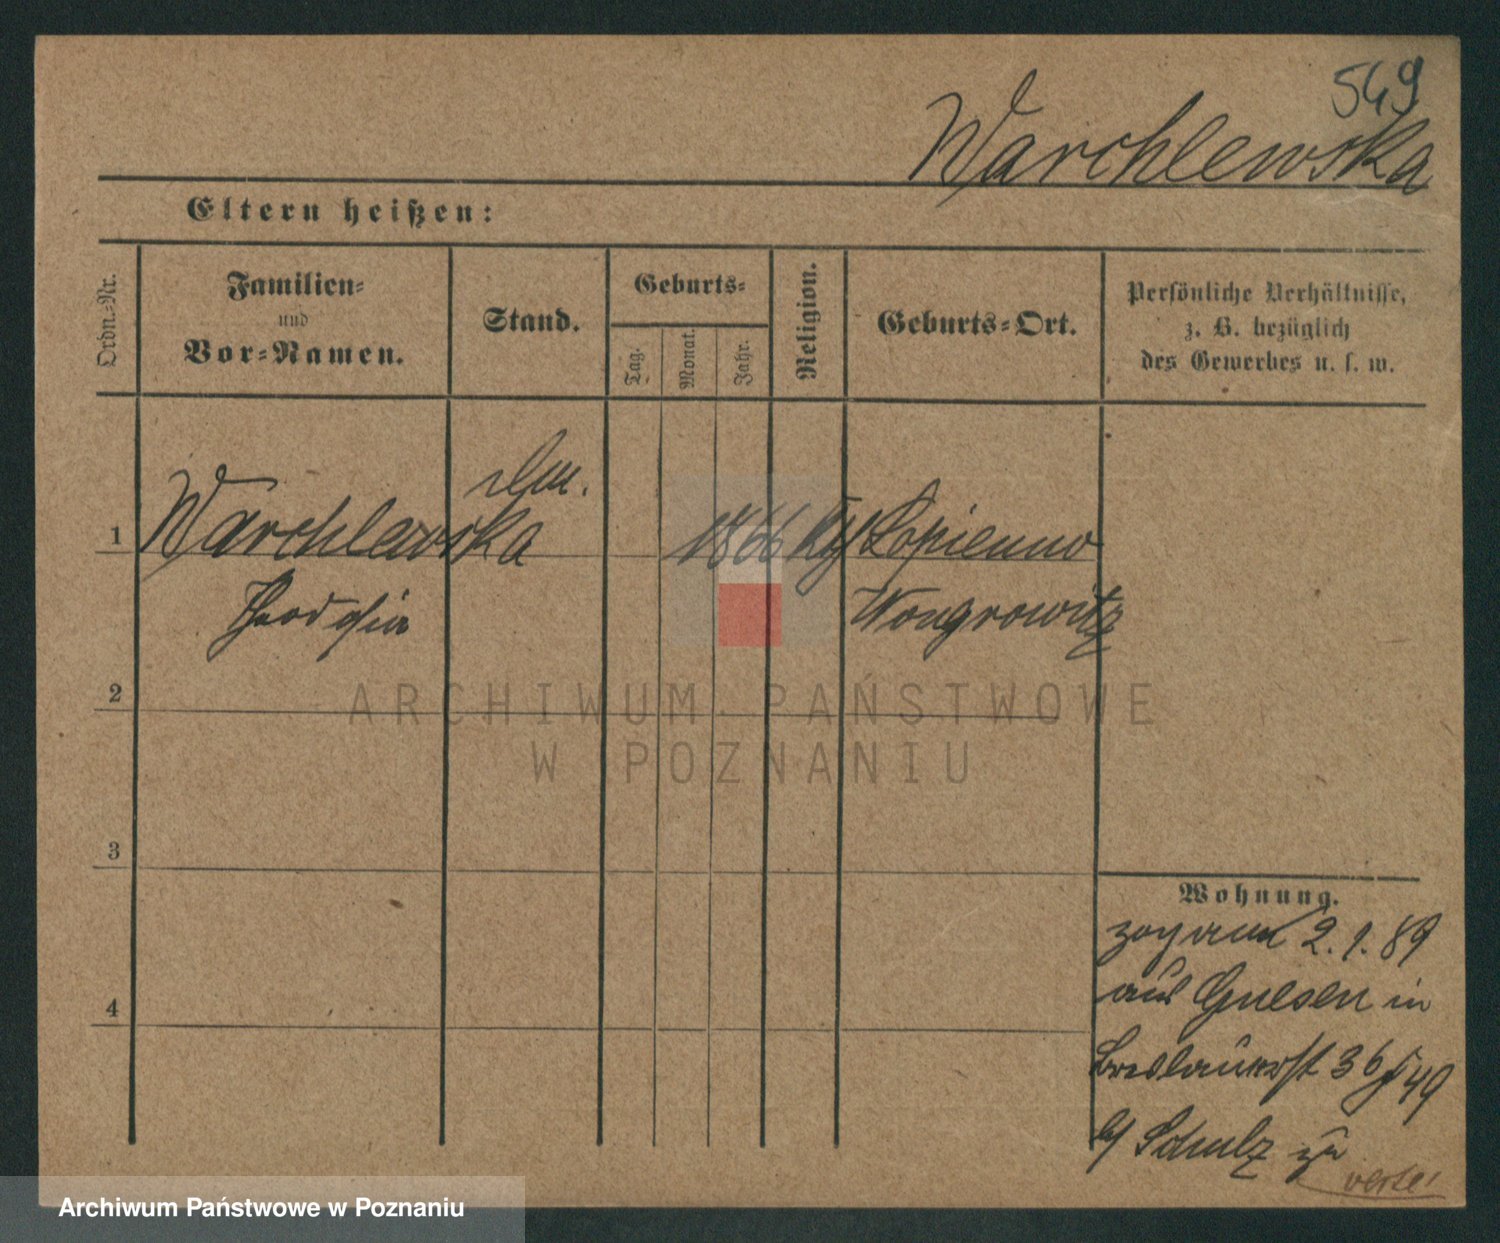 549
Warchlewska
Eltern heißen:
Ordn.-Nr.
Familien-
und
Vor-Namen.
Stand.
Geburts-
Tag.
Monat.
Jahr.
Religion.
Geburts-Ort.
Persönliche Verhältnisse,
z. B. bezüglich
des Gewerbes u. s. w.
1
Warchlewska
1866
Lopienno
Wongrowitz
2
ARCHIWUM PAŃSTWOWE
W POZNANIU
3
Wohnung.
zog am 2.1.89
aus Gnesen in
Breslauerst 36/49
b/ Schulz zu
4
Archiwum Państwowe w Poznaniu